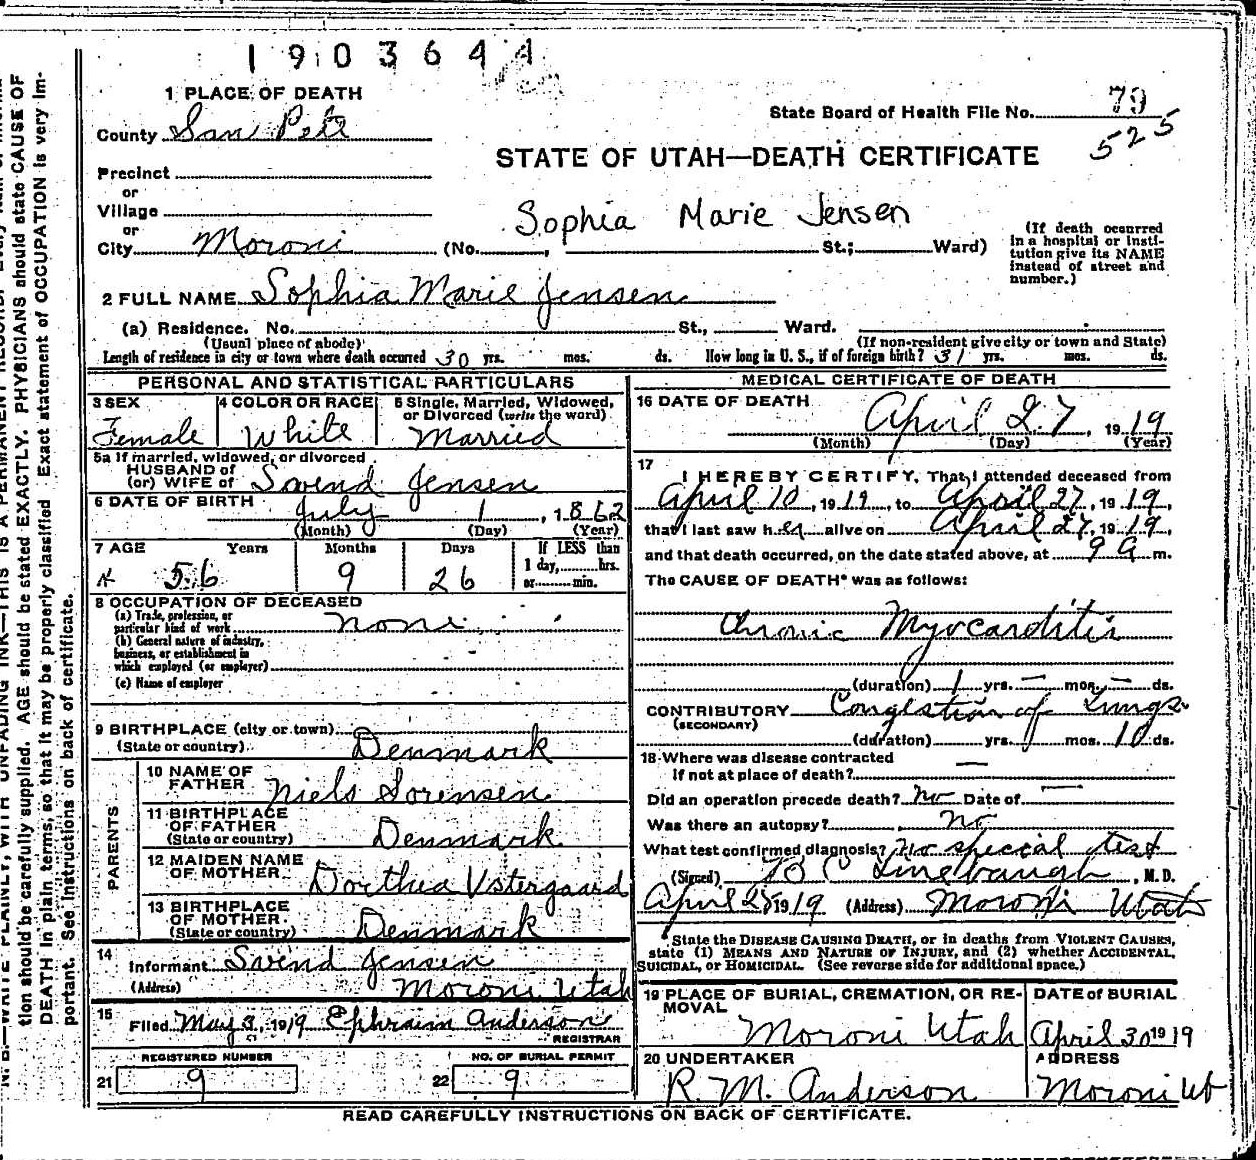 1903644
1 PLACE OF DEATH
County San Pete
State Board of Health File No. 79
525
STATE OF UTAH—DEATH CERTIFICATE
Precinct
or
Village
or
City Moroni (No. , St.; Ward)
Sophia Marie Jensen
(If death occurred
in a hospital or insti-
tution give its NAME
instead of street and
number.)
2 FULL NAME Sophia Marie Jensen
(a) Residence. No. St., Ward.
(Usual place of abode) (If non-resident give city or town and State)
Length of residence in city or town where death occurred 30 yrs. mos. ds. How long in U. S., if of foreign birth? 31 yrs. mos. ds.
PERSONAL AND STATISTICAL PARTICULARS
3 SEX 4 COLOR OR RACE 5 Single, Married, Widowed,
or Divorced (write the word)
Female White Married
5a If married, widowed, or divorced
HUSBAND of
(or) WIFE of Svend Jensen
6 DATE OF BIRTH
July 1, 1862
(Month) (Day) (Year)
7 AGE Years Months Days If LESS than
1 day, hrs.
or min.
56 9 26
8 OCCUPATION OF DECEASED
(a) Trade, profession, or
particular kind of work none
(b) General nature of industry,
business, or establishment in
which employed (or employer)
(c) Name of employer
9 BIRTHPLACE (city or town)
(State or country) Denmark
PARENTS
10 NAME OF
FATHER Niels Sorensen
11 BIRTHPLACE
OF FATHER
(State or country) Denmark
12 MAIDEN NAME
OF MOTHER Dorthea Ustergaard
13 BIRTHPLACE
OF MOTHER
(State or country) Denmark
14
Informant Svend Jensen
(Address) Moroni Utah
15
Filed May 3, 1919 Ephraim Anderson
REGISTRAR
REGISTERED NUMBER NO. OF BURIAL PERMIT
21 9 22 9
MEDICAL CERTIFICATE OF DEATH
16 DATE OF DEATH
April 27, 1919
(Month) (Day) (Year)
17
I HEREBY CERTIFY, That I attended deceased from
April 10, 1919, to April 27, 1919,
that I last saw her alive on April 27, 1919,
and that death occurred, on the date stated above, at 9 a m.
The CAUSE OF DEATH* was as follows:
Chronic Myocarditis
(duration) 1 yrs. — mos. — ds.
CONTRIBUTORY Congestion of Lungs
(SECONDARY)
(duration) yrs. mos. 10 ds.
18 Where was disease contracted
if not at place of death? —
Did an operation precede death? no Date of —
Was there an autopsy? no
What test confirmed diagnosis? no special test
(Signed) B C Linebaugh, M. D.
April 28, 1919 (Address) Moroni Utah
*State the DISEASE CAUSING DEATH, or in deaths from VIOLENT CAUSES,
state (1) MEANS AND NATURE OF INJURY, and (2) whether ACCIDENTAL,
SUICIDAL, or HOMICIDAL. (See reverse side for additional space.)
19 PLACE OF BURIAL, CREMATION, OR RE-
MOVAL
Moroni Utah
DATE of BURIAL
April 30 1919
20 UNDERTAKER
R. M. Anderson
ADDRESS
Moroni Ut
READ CAREFULLY INSTRUCTIONS ON BACK OF CERTIFICATE.
N. B.—WRITE PLAINLY, WITH UNFADING INK—THIS IS A PERMANENT RECORD.
tion should be carefully supplied. AGE should be stated EXACTLY. PHYSICIANS should state CAUSE OF
DEATH in plain terms, so that it may be properly classified. Exact statement of OCCUPATION is very im-
portant. See instructions on back of certificate.